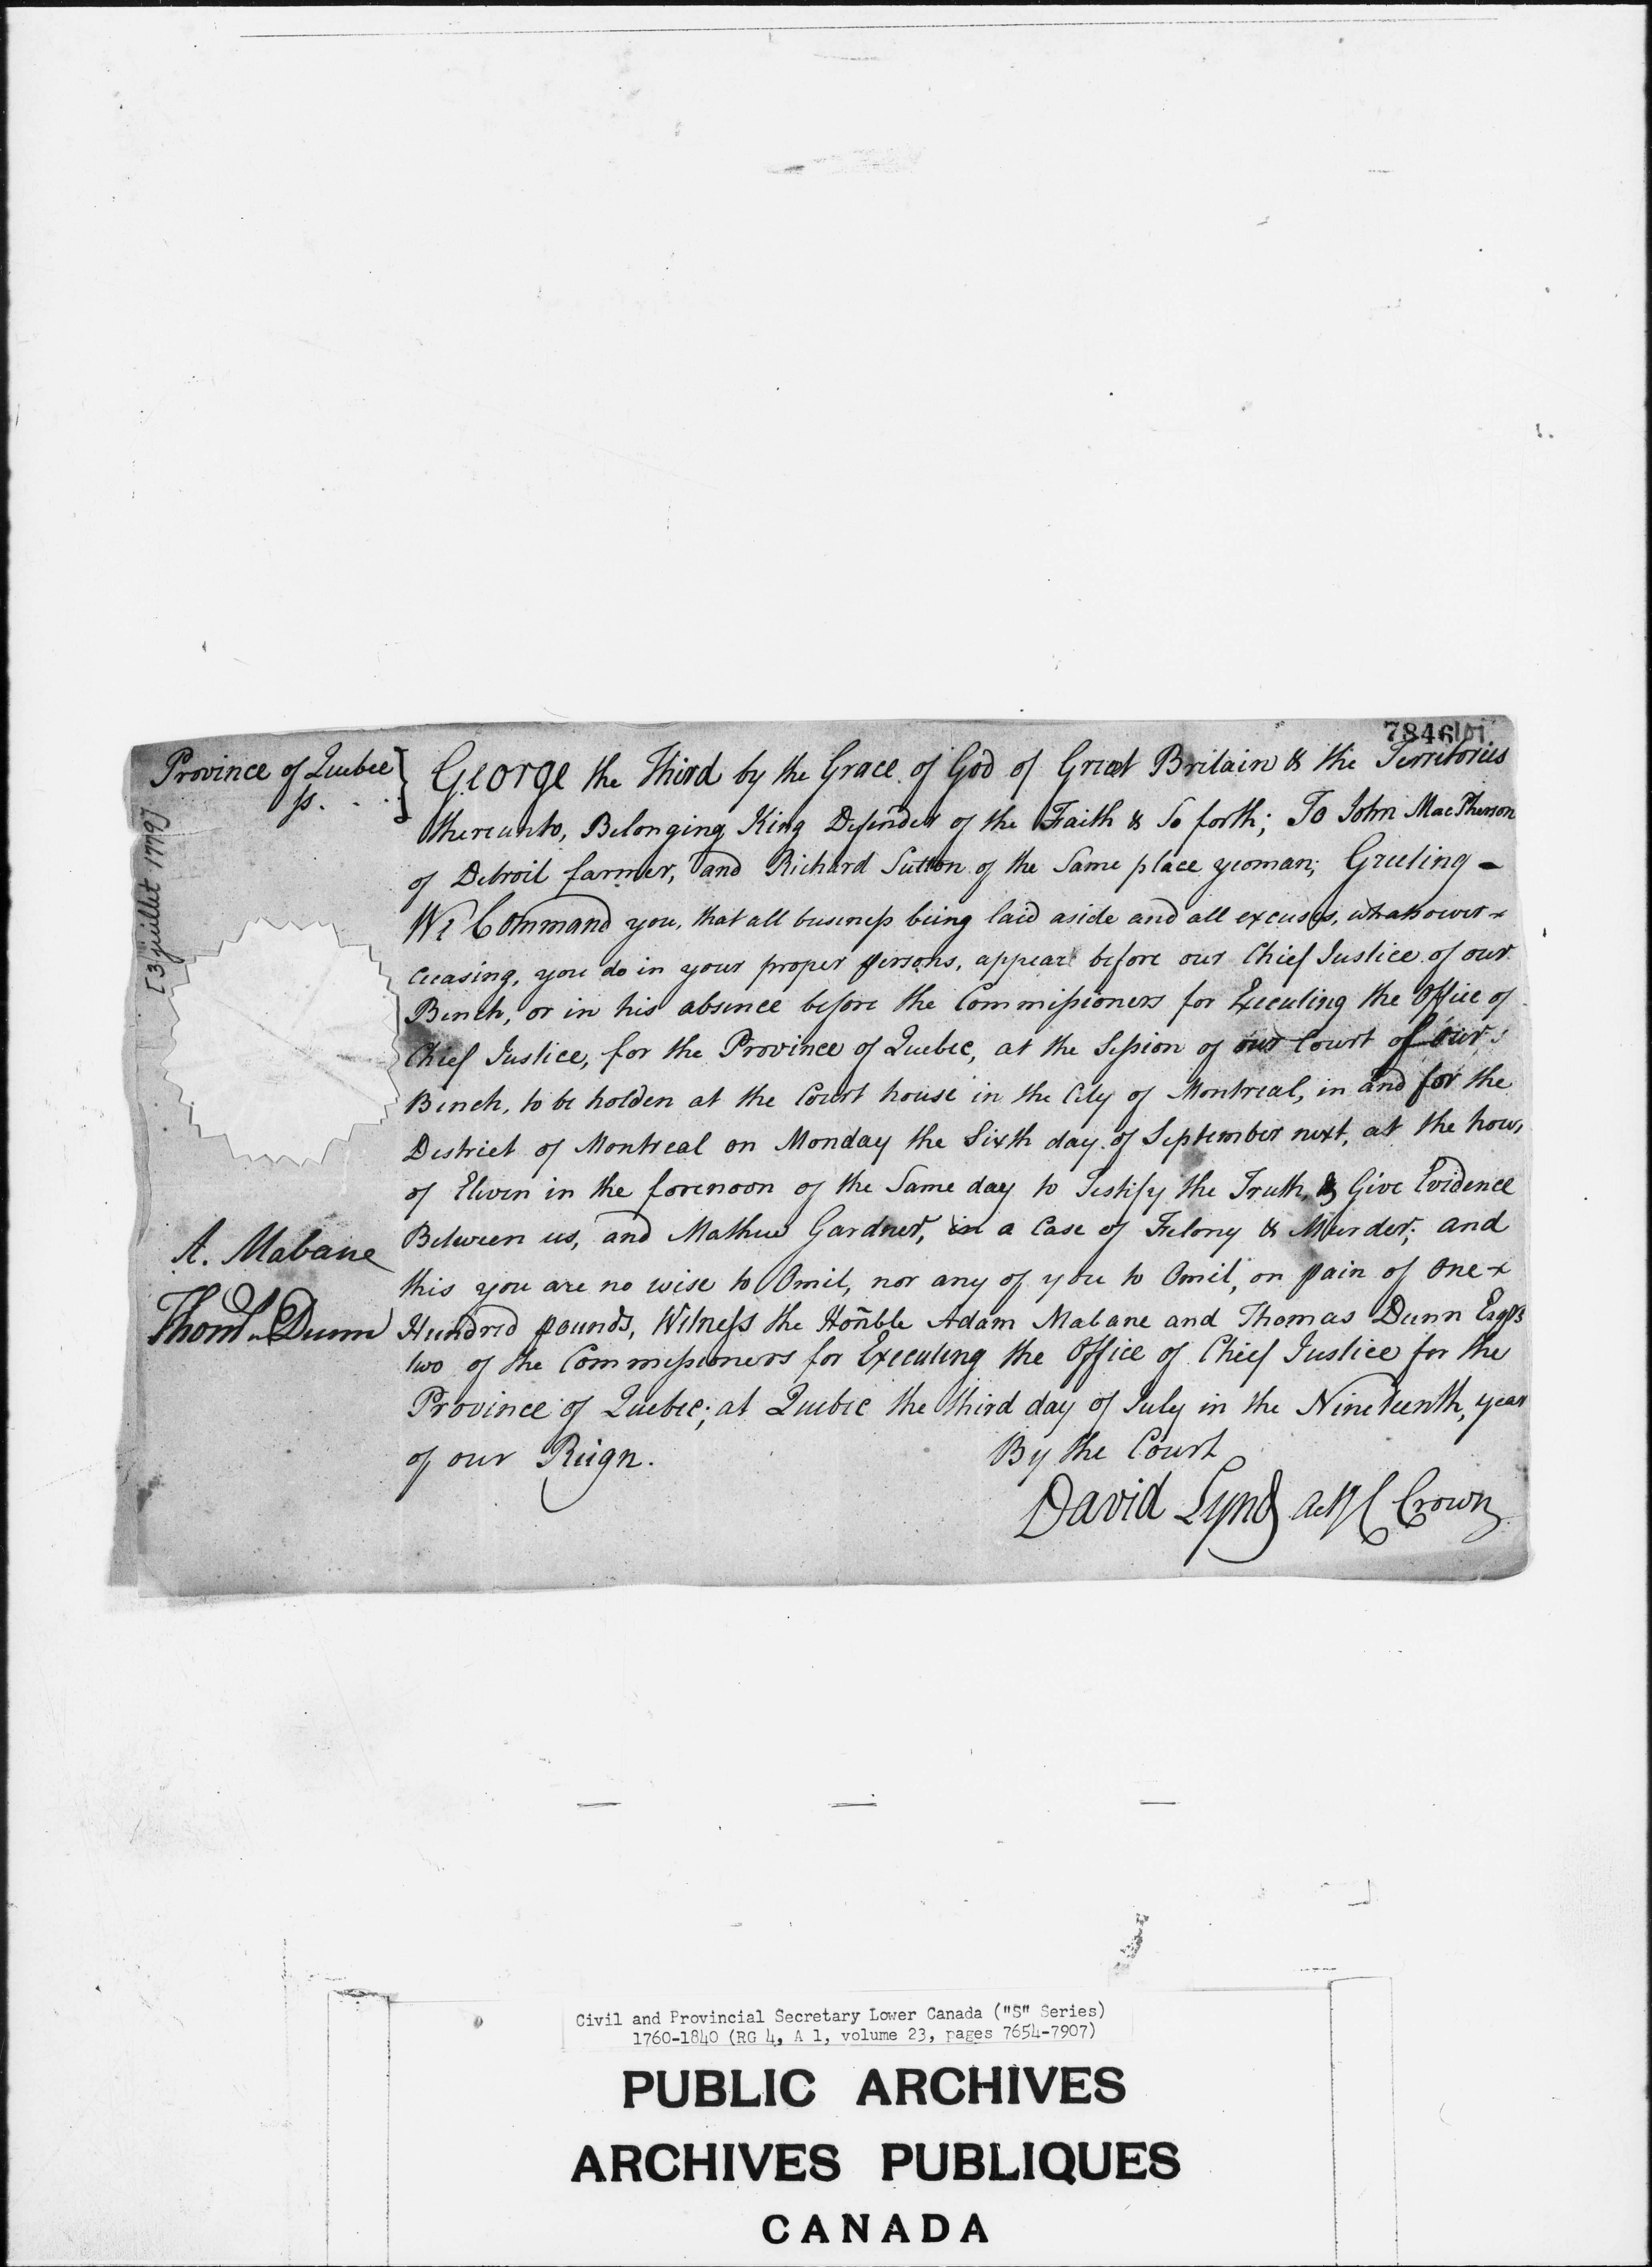 7846
Province of Quebec } George the Third by the Grace of God of Great Britain & the Territories
ss. . . thereunto, Belonging King Defender of the Faith & So forth; To John MacPherson
of Detroit farmer, and Richard Sutton of the Same place yeoman; Greeting -
We Command you, that all business being laid aside and all excuses, whatsoever
ceasing, you do in your proper persons, appear before our Chief Justice of our
Bench, or in his absence before the Commissioners for Executing the Office of
Chief Justice, for the Province of Quebec, at the Session of our Court of our
Bench, to be holden at the Court house in the City of Montreal, in and for the
District of Montreal on Monday the Sixth day of September next, at the hour
of Eleven in the forenoon of the Same day to Testify the Truth, & Give Evidence
Between us, and Mathew Gardner, in a Case of Felony & Murder; and
this you are no wise to Omit, nor any of you to Omit, on pain of One
Hundred pounds, Witness the Honble Adam Mabane and Thomas Dunn Esqrs
two of the Commissioners for Executing the Office of Chief Justice for the
Province of Quebec; at Quebec the third day of July in the Nineteenth, year
of our Reign.
By the Court
David Lynd act C Crown
[3 juillet 1779]
A. Mabane
Thoms Dunn
Civil and Provincial Secretary Lower Canada ("S" Series)
1760-1840 (RG 4, A 1, volume 23, pages 7654-7907)
PUBLIC ARCHIVES
ARCHIVES PUBLIQUES
CANADA